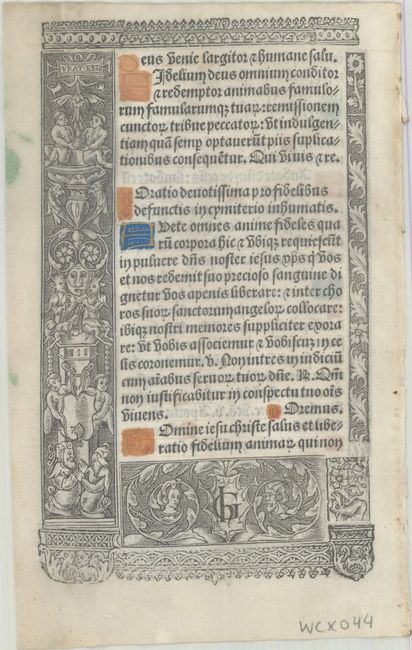 VRAY EST
Deus venie largitor ⁊ humane salu.
Fidelium deus omnium conditor
⁊ redemptor animabus famulo-
rum famularumqꝫ tuaꝝ: remissionem
cunctoꝝ tribue peccatoꝝ: vt indulgen-
tiam quã semp optauerũt piis suplica-
tionibus consequẽtur. Qui viuis ⁊ re.
Oratio deuotissima pro fidelibus
defunctis in cymiterio inhumatis.
Auete omnes anime fideles qua
rũ corpora hic ⁊ vbiqꝫ requiescũt
in puluere dñs noster iesus xp̃s q̃ vos
et nos redemit suo precioso sanguine di
gnetur vos apenis liberare: ⁊ inter cho
ros suoꝝ sanctorum angeloꝝ collocare:
ibiqꝫ nostri memores suppliciter exora
re: vt vobis associemur ⁊ vobiscũ in ce
lis coronemur. v. Non intres in iudiciũ
cum aĩabus seruoꝝ tuoꝝ dñe. R. Qm̃
non iustificabitur in conspectu tuo oĩs
viuens. Oremus.
Domine iesu christe salus et libe-
ratio fidelium animaꝝ qui non
GL
WCX044